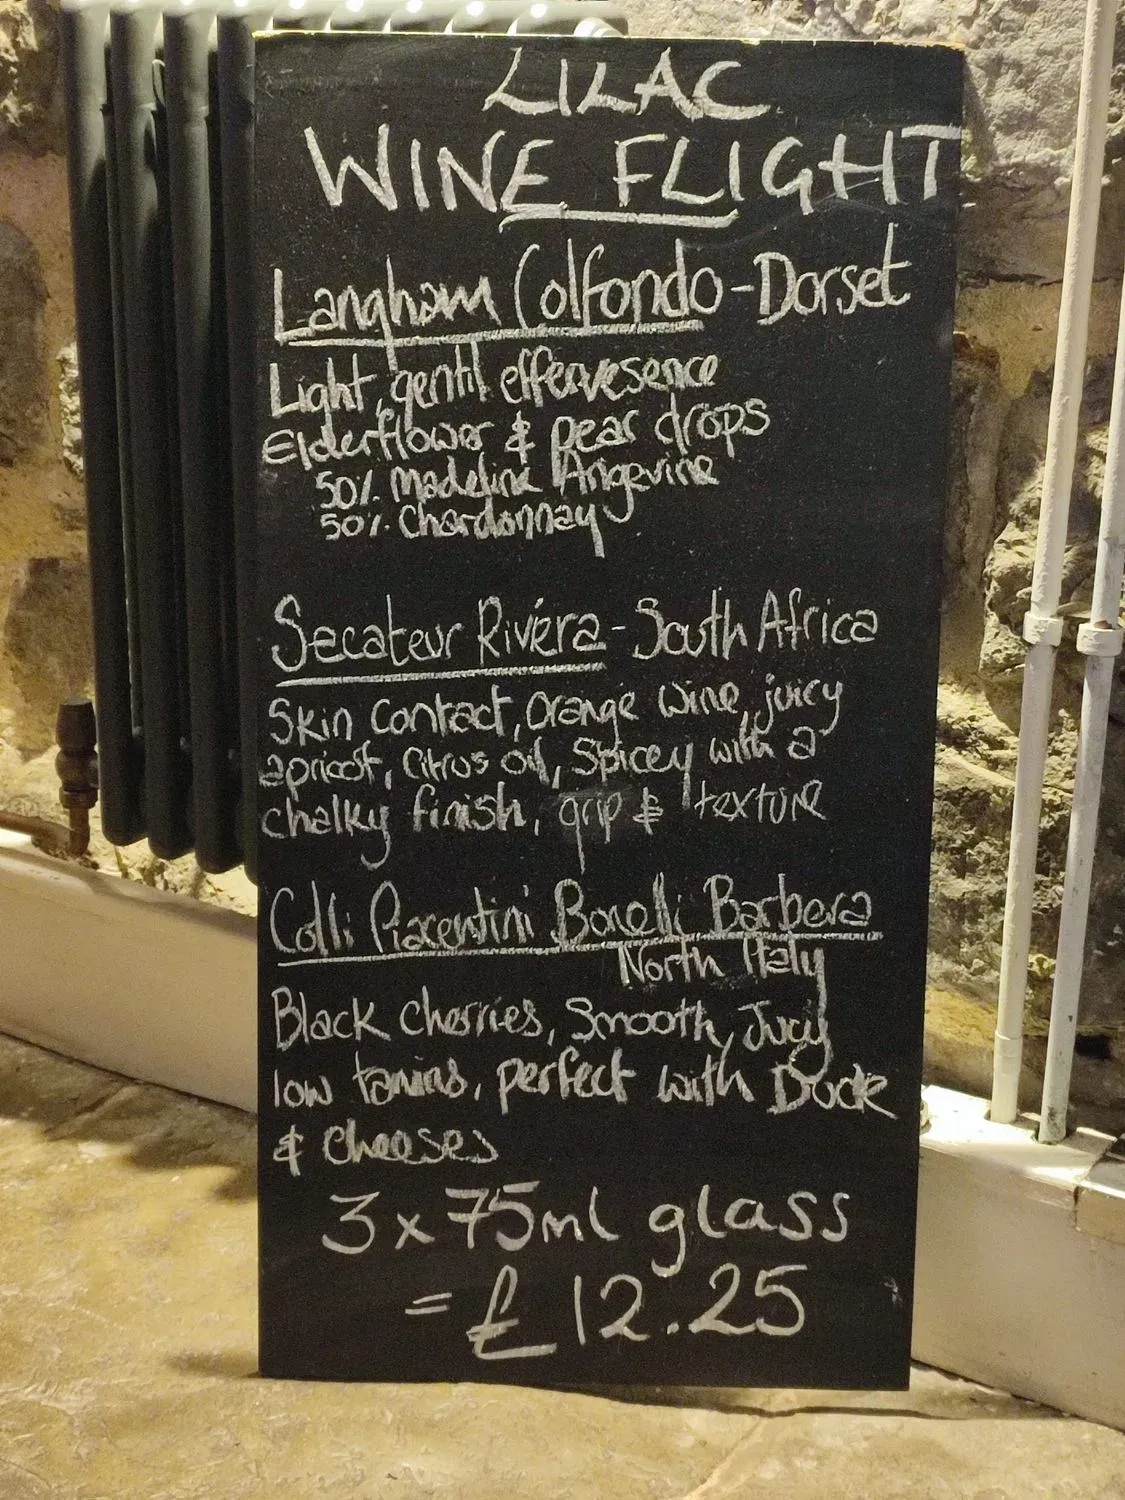 LILAC
WINE FLIGHT
Langham Colfondo - Dorset
Light, gentil effervesence
Elderflower & pear drops
50% Madeline Angevine
50% Chardonnay
Secateur Riviéra - South Africa
Skin contact, orange wine, juicy
apricot, citrus oil, Spicey with a
chalky finish, grip & texture
Colli Piacentini Bonelli Barbera
North Italy
Black cherries, Smooth, Jucy
low tanins, perfect with Duck
& cheeses
3 x 75ml glass
= £12.25